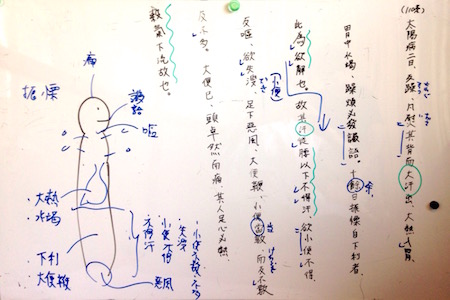 (110条)
太陽病二日、反躁、凡熨其背而大汗出、大熱入胃、
胃中水竭、躁煩必發讝語、十餘日振慄自下利者、
此為欲解也。故其汗從腰以下不得汗、欲小便不得、
反嘔、欲失溲、足下惡風、大便鞕、小便當數、而反不數
及不多、大便已、頭卓然而痛、其人足心必熱、
穀氣下流故也。
痛
振慄
讝語
嘔
大熱
水竭
下利
大便鞕
惡風
不得汗
失溲
小便不得
小便不數、不多